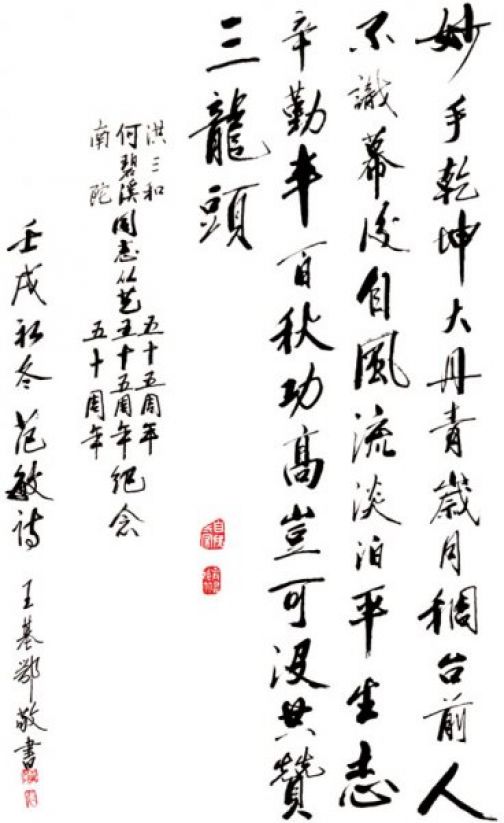 妙手乾坤大丹青歲月稠台前人
不識幕後自風流淡泊平生志
辛勤半百秋功高豈可沒共贊
三龍頭
洪三和 五十五周年
何碧溪同志从艺五十五周年纪念
南陀 五十周年
壬戌初冬范敏诗 王基鄂敬書